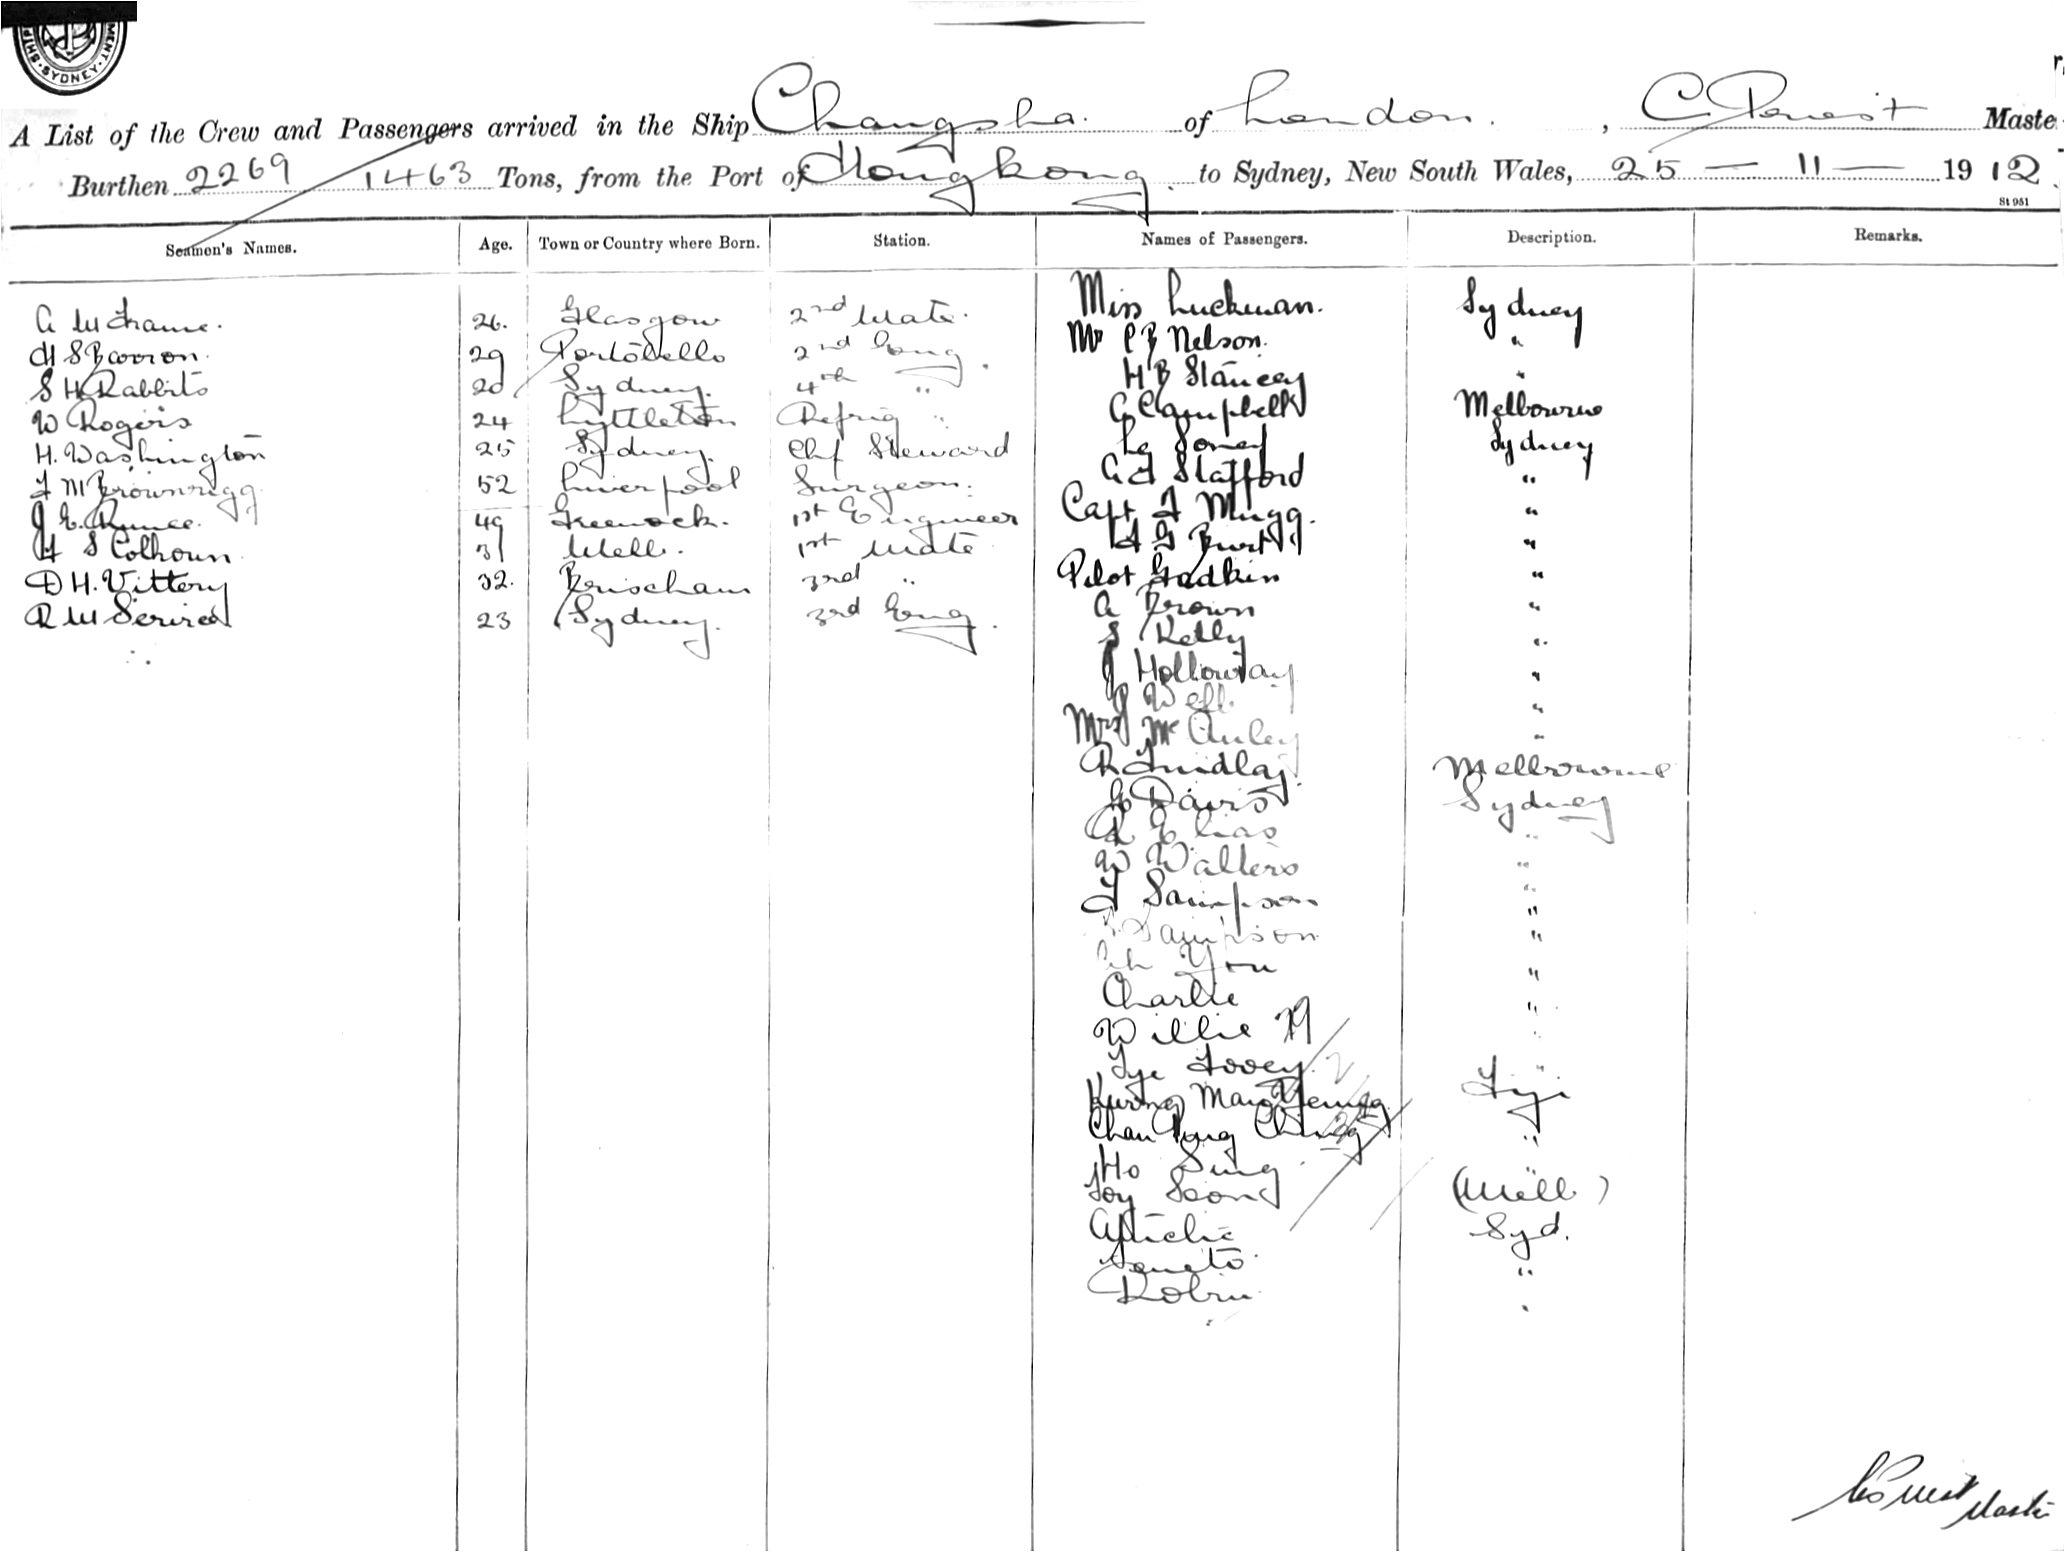 SYDNEY
A List of the Crew and Passengers arrived in the Ship Changsha. of London. , Maste
Burthen 2269 1463 Tons, from the Port of Hongkong. to Sydney, New South Wales, 25 — 11 — 1912.
St 951
Seamen's Names. Age. Town or Country where Born. Station. Names of Passengers. Description. Remarks.
26. Glasgow 2nd Mate. Miss Luckman. Sydney
H S Barron. 29 Portobello 2nd Eng. Mr P B Nelson. "
S H Rabbits 20 Sydney. 4th " H B Stancey "
W Rogers 24 Lyttleton Refrig " C Campbell Melbourne
H. Washington 25 Sydney. Chf Steward Sydney
F M Brownrigg 52 Liverpool Surgeon. Stafford "
J E. 49 Greenock. 1st Engineer Capt F Mugg. "
S Colhoun. 31 Melb. 1st Mate Burt "
D H. Vittery 32. Brischam 3rd " Pilot "
R W 23 Sydney. 3rd Eng. A Brown "
S Kelly "
J Holloway "
J "
Mrs McAuley "
R Findlay. Melbourne
Davis Sydney
"
W Walters "
F Sampson "
Sampson "
You "
Charlie "
Willie "
Fooey "
Kwong Fiji
Chan "
Ho Sing "
(Melb.)
Syd.
"
Robin. "